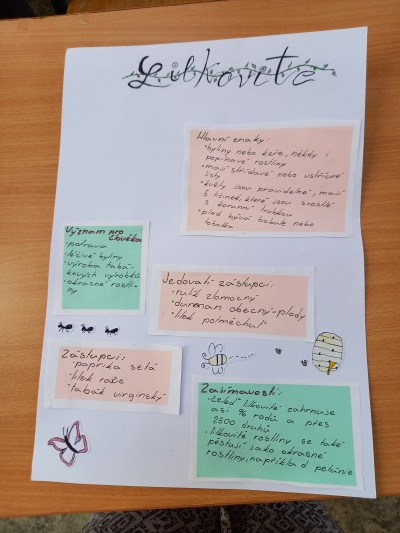 Lilkovité
Hlavní znaky:
•byliny nebo keře, někdy i
popínavé rostliny
•mají střídavé nebo vstřícné
listy
•květy jsou pravidelné, mají
5 tyčinek, které jsou srostlé
s korunní trubkou
•plod bývá bobule nebo
tobolka
Význam pro
člověka
•potrava
•léčivé byliny
•výroba tabá-
kových výrobků
•okrasné rostli-
ny
Jedovatí zástupci:
•rulík zlomocný
•durman obecný-plody
•lilek potměchuť
Zástupci:
•paprika setá
•lilek rajče
•tabák virginský
Zajímavosti:
•čeleď lilkovité zahrnuje
asi 96 rodů a přes
2500 druhů
•lilkovité rostliny se také
pěstují jako okrasné
rostliny, například petúnie